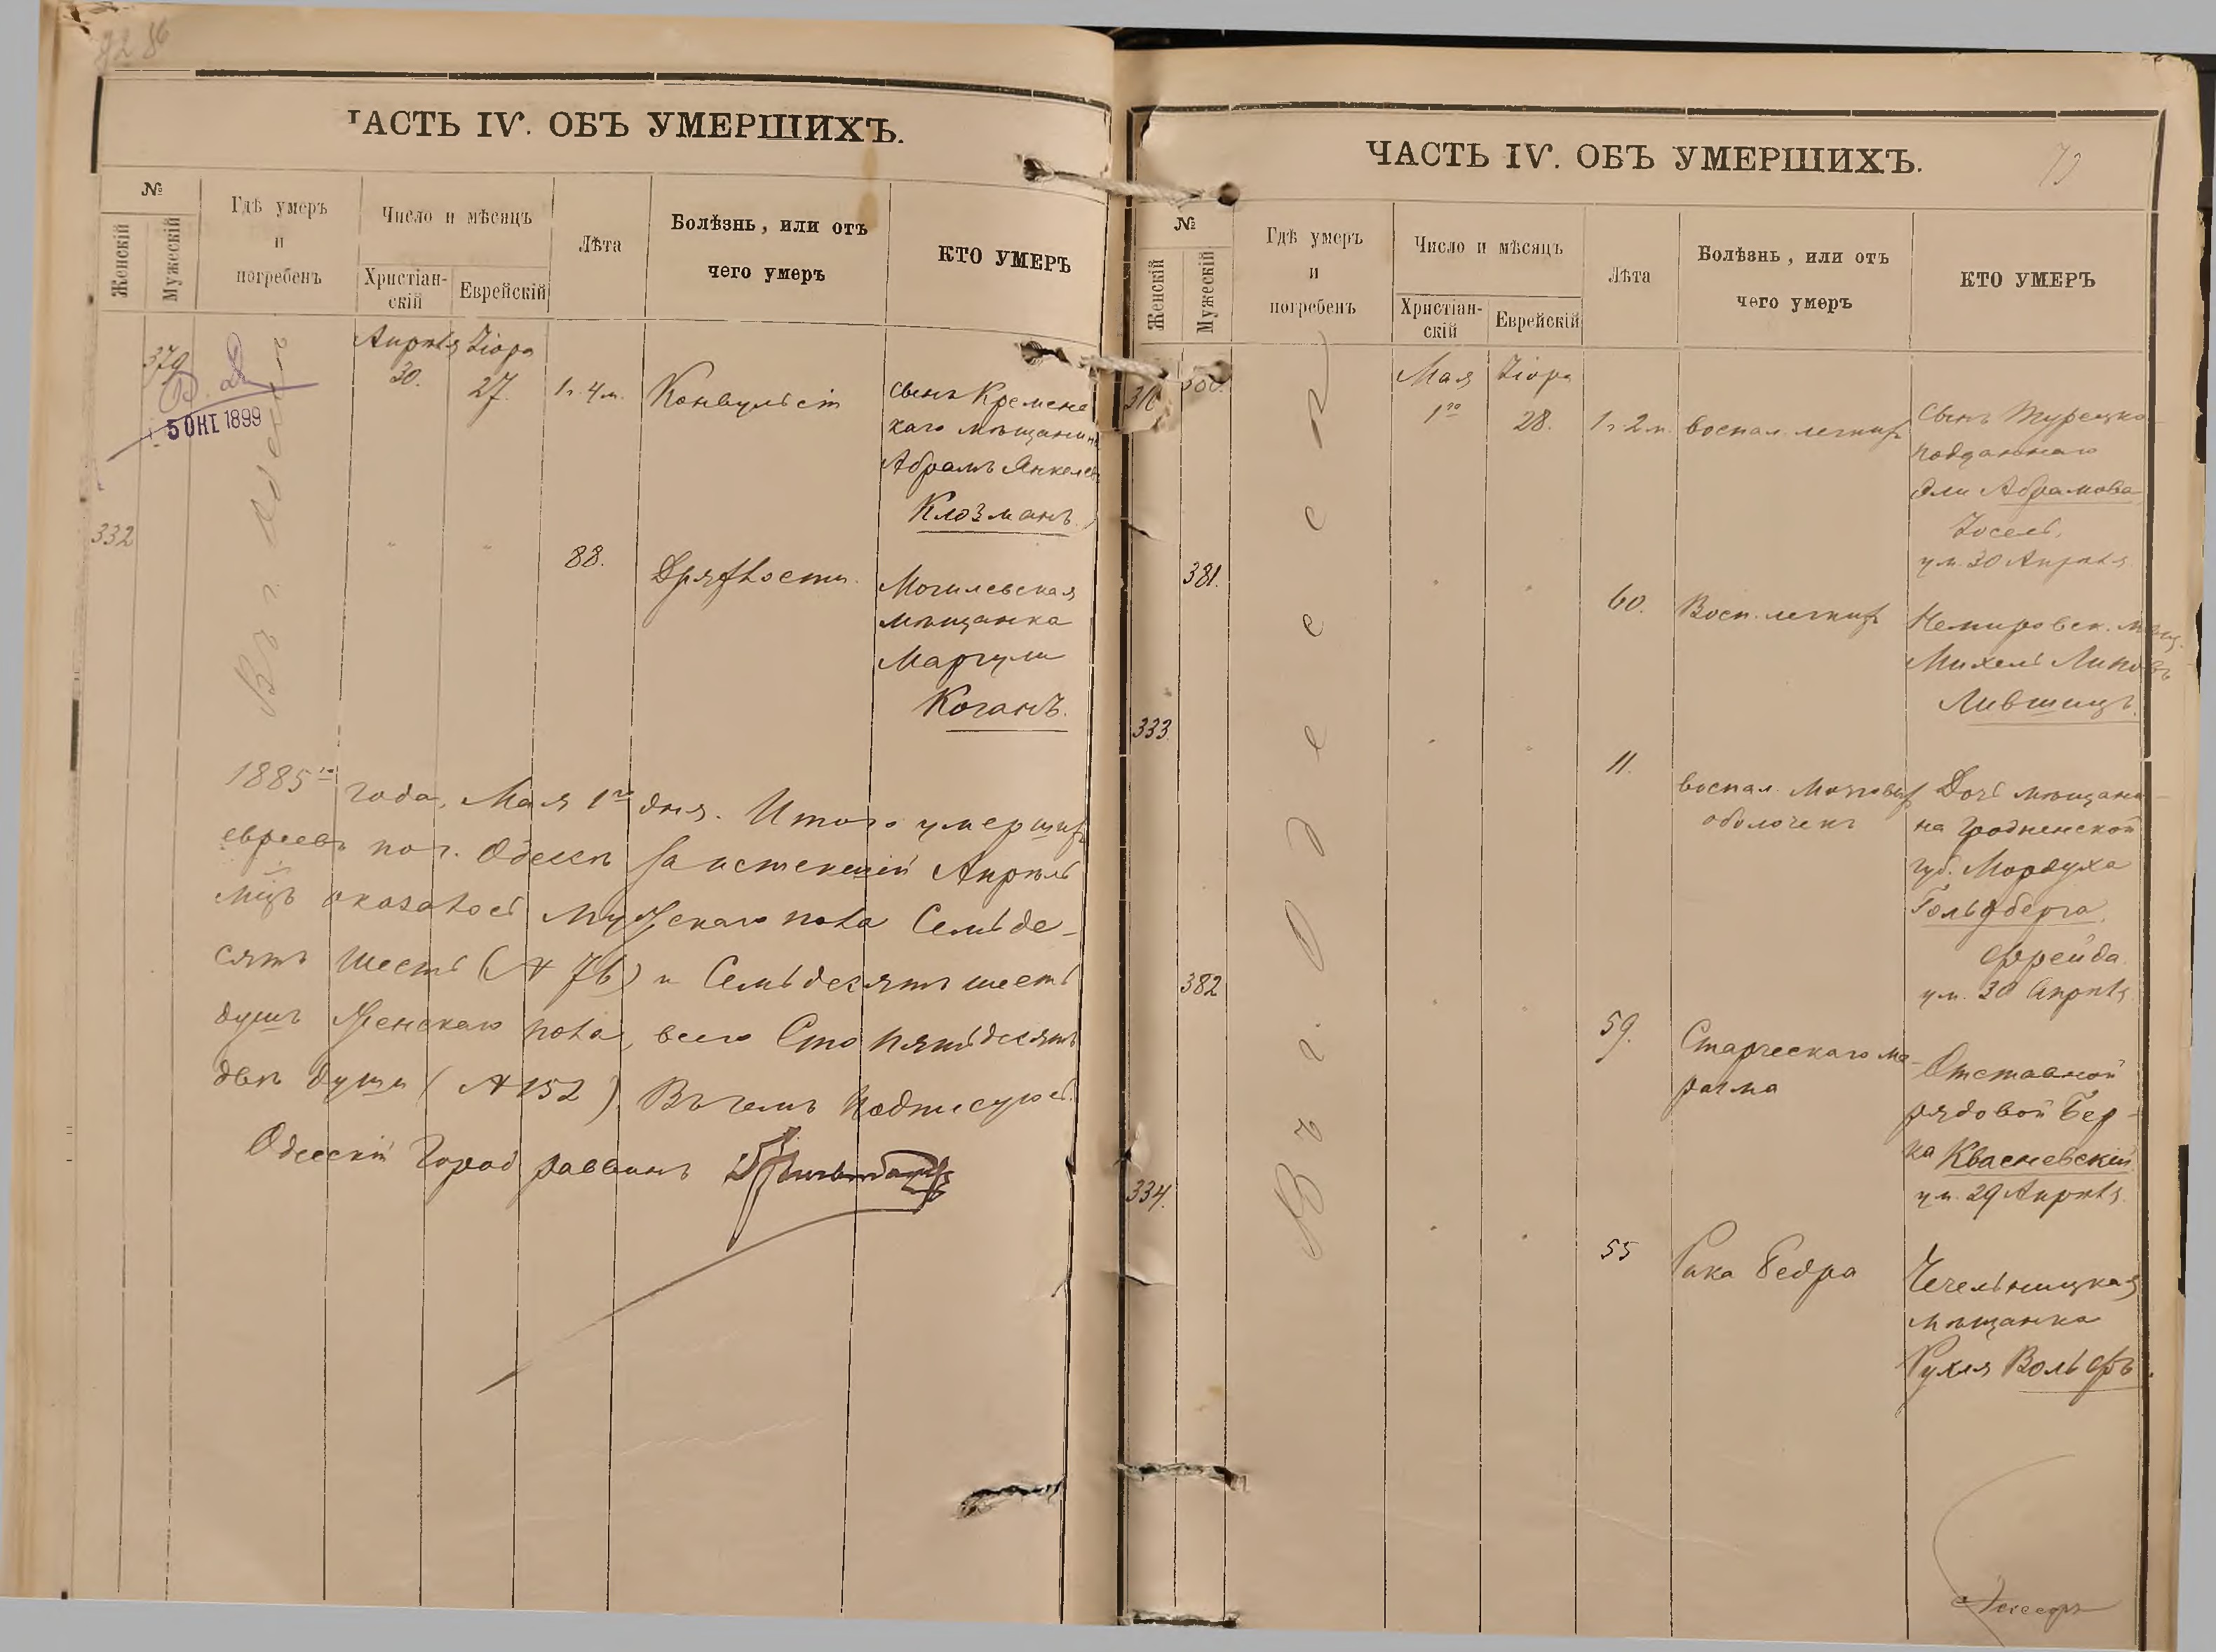 ЧАСТЬ IV. ОБЪ УМЕРШИХЪ.
№
Женскій
Мужескій
Гдѣ умеръ
и
погребенъ
Число и мѣсяцъ
Христіан-
скій
Еврейскій
Лѣта
Болѣзнь, или отъ
чего умеръ
КТО УМЕРЪ
Въ г. Одессѣ
379
5 ОКТ 1899
Апрѣля
30.
Ііора
27.
1 г. 4 м.
Конвульсіи
сынъ Кремене
каго мѣщанина
Абрамъ Янкелев
Клозманъ.
332
"
"
88.
Дряхлости.
Могилевская
мѣщанка
Маргули
Коганъ.
1885го года, Мая 1го дня. Итого умершихъ
евреевъ по г. Одессѣ за истекшій Апрѣль
мцъ оказалось мужскаго пола Семьде-
сятъ шесть (№ 76) и Семьдесятъ шесть
душъ женскаго пола, всего Сто пятьдесятъ
двѣ души (№ 152). Въ чемъ подписуюсь.
Одесскій Город. раввинъ
ЧАСТЬ IV. ОБЪ УМЕРШИХЪ.
№
Женскій
Мужескій
Гдѣ умеръ
и
погребенъ
Число и мѣсяцъ
Христіан-
скій
Еврейскій
Лѣта
Болѣзнь, или отъ
чего умеръ
КТО УМЕРЪ
Въ г. Одессѣ
380.
Мая
1го
Ііора
28.
1 г. 2 м.
воспал. легкихъ
Сынъ Турецко-
подданнаго
Эли Абрамова
Іосель,
ум. 30 Апрѣля
381.
"
"
60.
Восп. легкихъ
Немировск. мѣщ.
Михель Липовъ
Лившицъ.
333.
"
"
11.
воспал. мозговыхъ
оболочекъ
Дочь мѣщани-
на Гродненской
губ. Мордуха
Гольдберга,
Фрейда.
ум. 30 Апрѣля
382
"
"
59.
Старческаго ма-
разма
Отставной
рядовой Бер-
ка Квасневскій.
ум. 29 Апрѣля.
334.
"
"
55
Рака бедра
Чечельницкая
мѣщанка
Рухля Вольфъ.